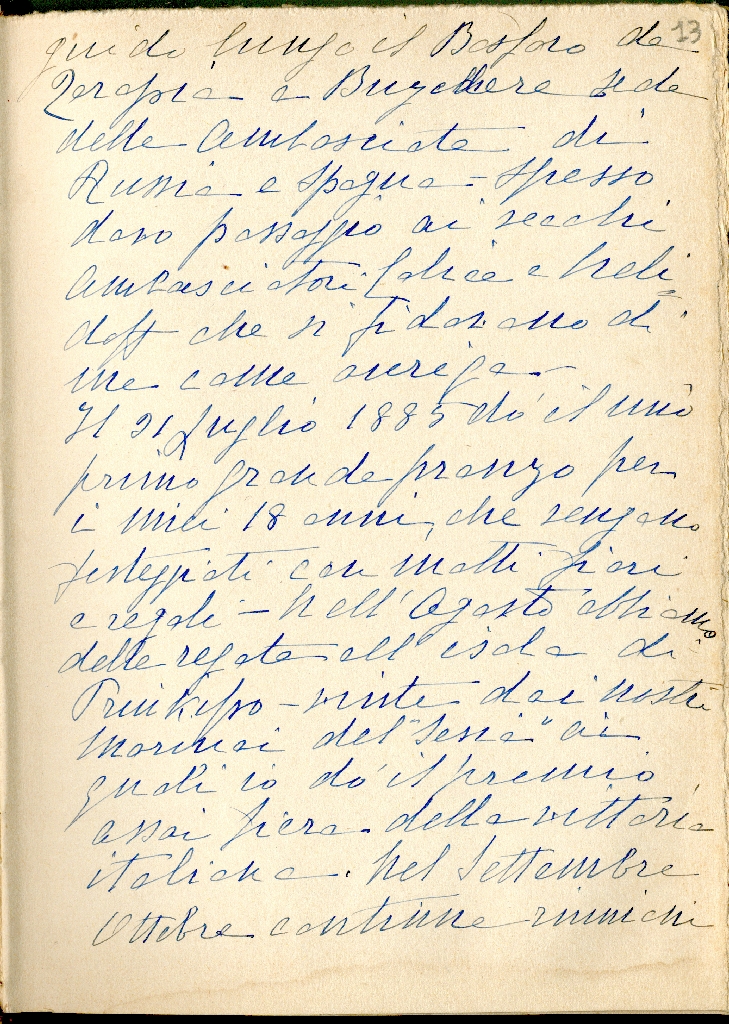 13
guido lungo il Bosforo da
Terapia a Bujukdere sede
delle Ambasciate di
Russia e Spagna - Spesso
davo passaggio ai vecchi
Ambasciatori e Neli=
doff che si fidavano di
me come auriga -
Il 21 Luglio 1885 dó il mio
primo grande pranzo per
i miei 18 anni, che vengono
festeggiati con molti fiori
e regali - Nell' Agosto abbiamo
delle regate all' isola di
Prinkipo - vinte dai nostri
marinai del "Sesia" ai
quali io dó il premio,
assai fiera della vittoria
italiana. Nel Settembre
Ottobre continue riunioni